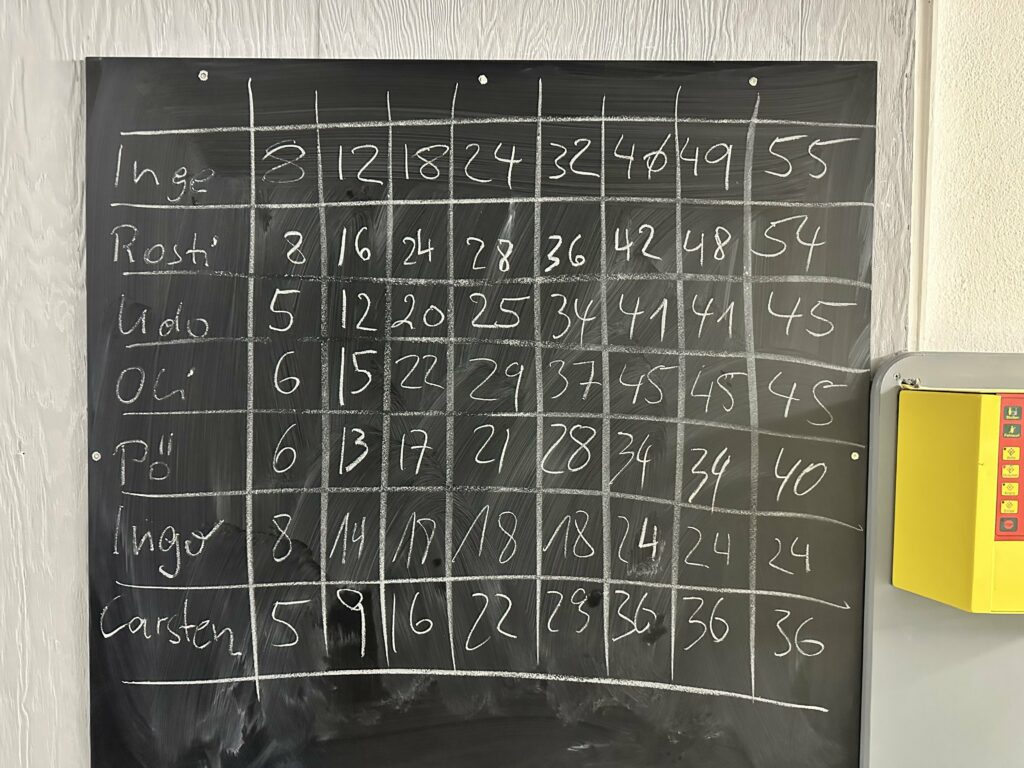 Inge 8 12 18 24 32 40 49 55
Rosti 8 16 24 28 36 42 48 54
Udo 5 12 20 25 34 41 41 45
Oli 6 15 22 29 37 45 45 45
Pö 6 13 17 21 28 34 34 40
Ingo 8 14 18 18 18 24 24 24
Carsten 5 9 16 22 29 36 36 36